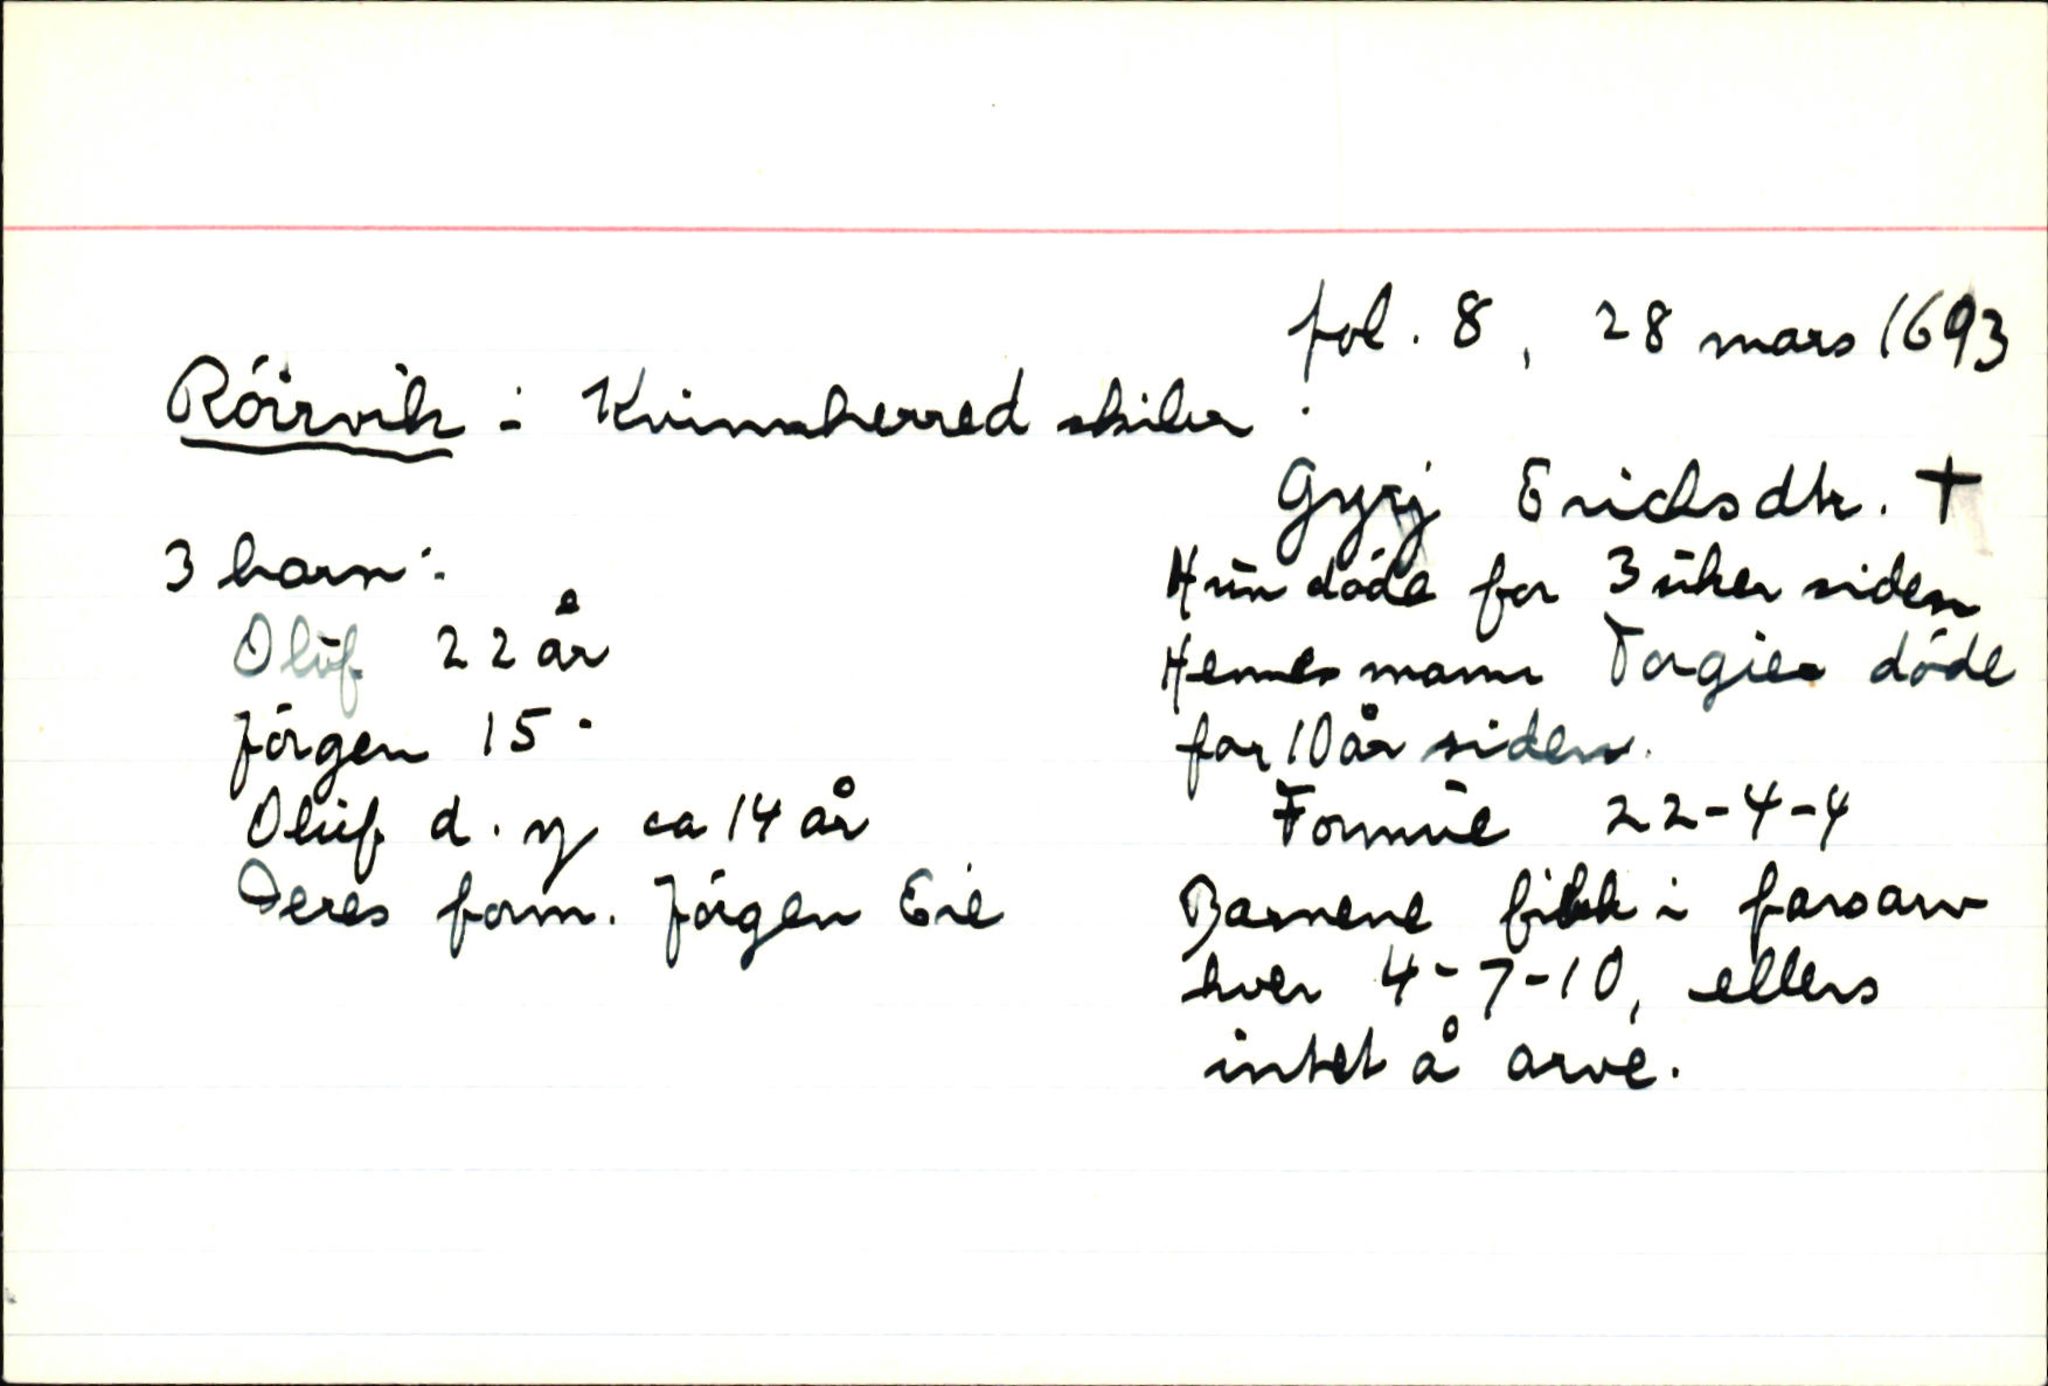 fol. 8, 28 mars 1693
Röirvik i Kvinnherred skibr.
3 barn:
Oluf 22 år
Jörgen 15 "
Oluf d. y ca 14 år
Deres form. Jörgen Eie
Gyrj Ericksdtr. †
Hun döde for 3 uker siden
Hennes mann Torgier döde
for 10 år siden.
Formue 22-4-4
Barnene fikk i farsarv
hver 4-7-10, ellers
intet å arve.